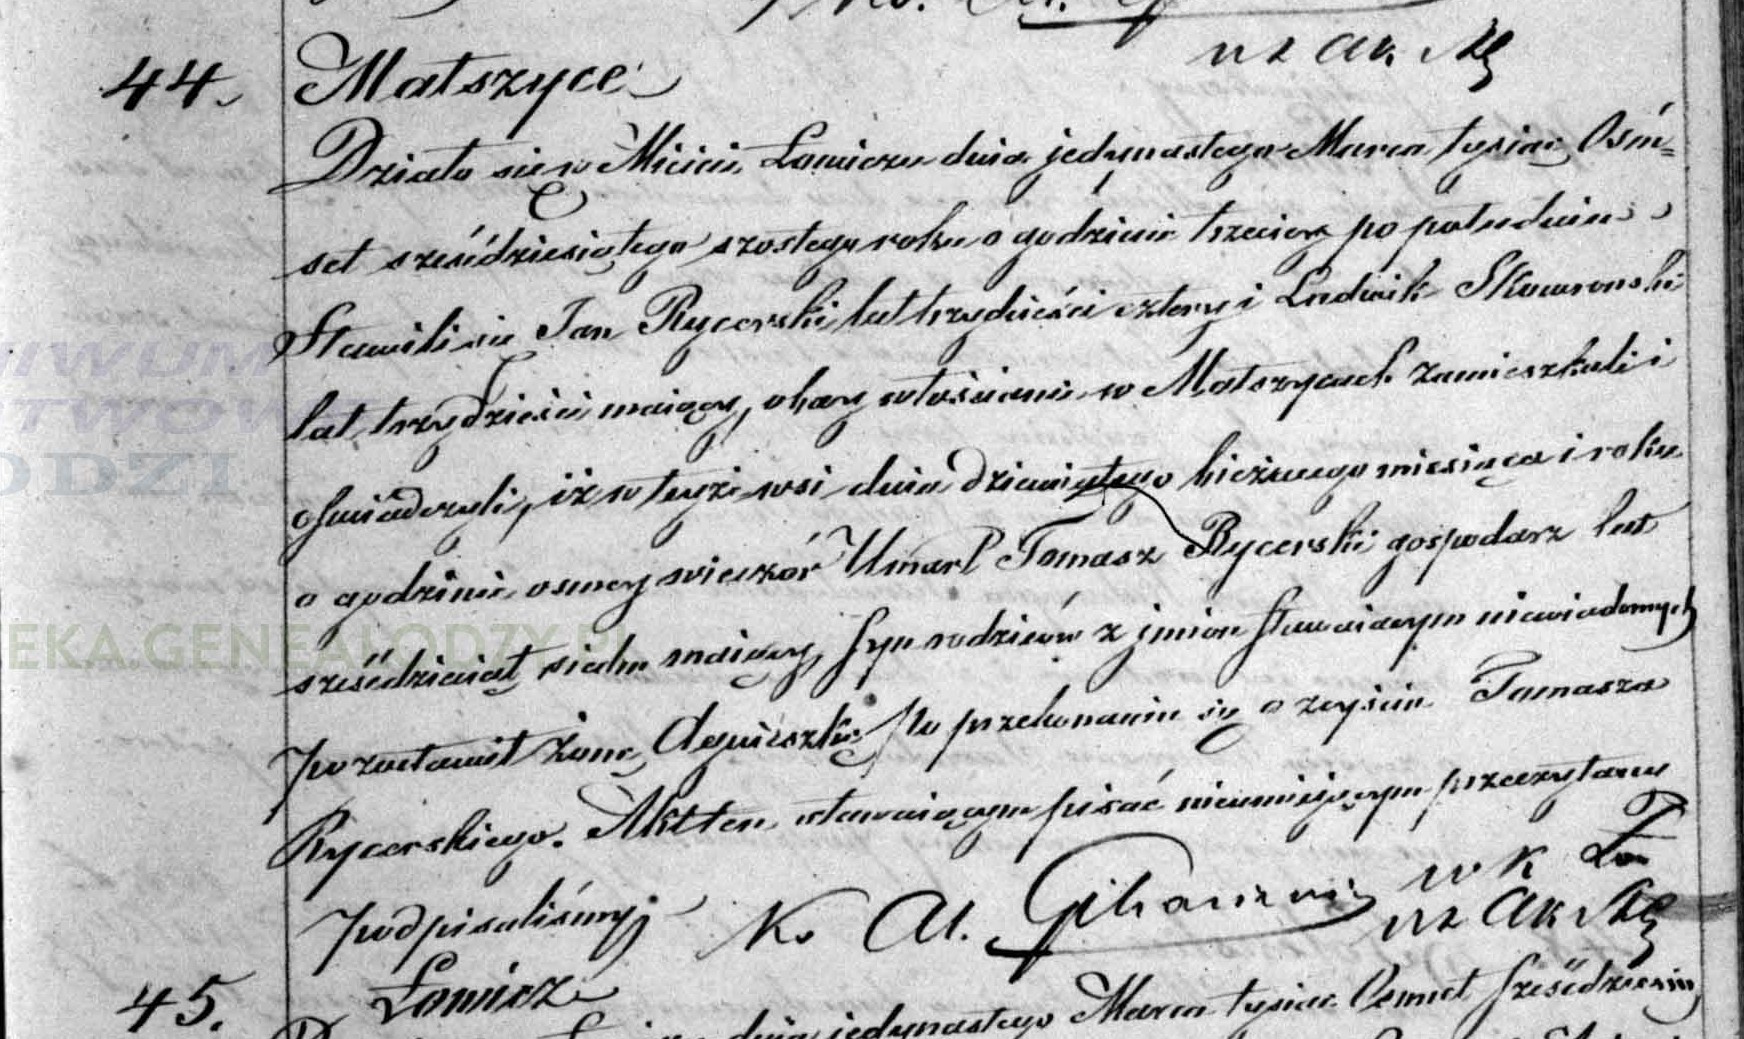 44. Matszyce
nz Ak. 
Działo się w Mieście Łowiczu dnia jedynastego Marca tysiąc Osm=
set sześćdziesiątego szostego roku o godzinie trzeciey po południu
Stawili się Jan Rycerski lat trzydzieści cztery i Ludwik Skowronski
lat trzydzieści maiący, obay włościanie w Matszycach zamieszkali i
oświadczyli, iż w teyże wsi dnia dziewiątego bieżącego miesiąca i roku
o godzinie osmey wieczór Umarł Tomasz Rycerski gospodarz lat
sześćdziesiąt siedm maiący, syn rodziców z imion stawaiącym niewiadomych
pozostawił żonę Agnieszkę, Po przekonaniu się o zeyściu Tomasza
Rycerskiego. Akt ten stawaiącym pisać nieumiejącym przeczytany
Podpisaliśmy
45. Łowicz
dnia jedynastego Marca tysiąc Osmset sześćdziesią
IWUM
TWOW
ODZI
EKA.GENEALODZY.PL